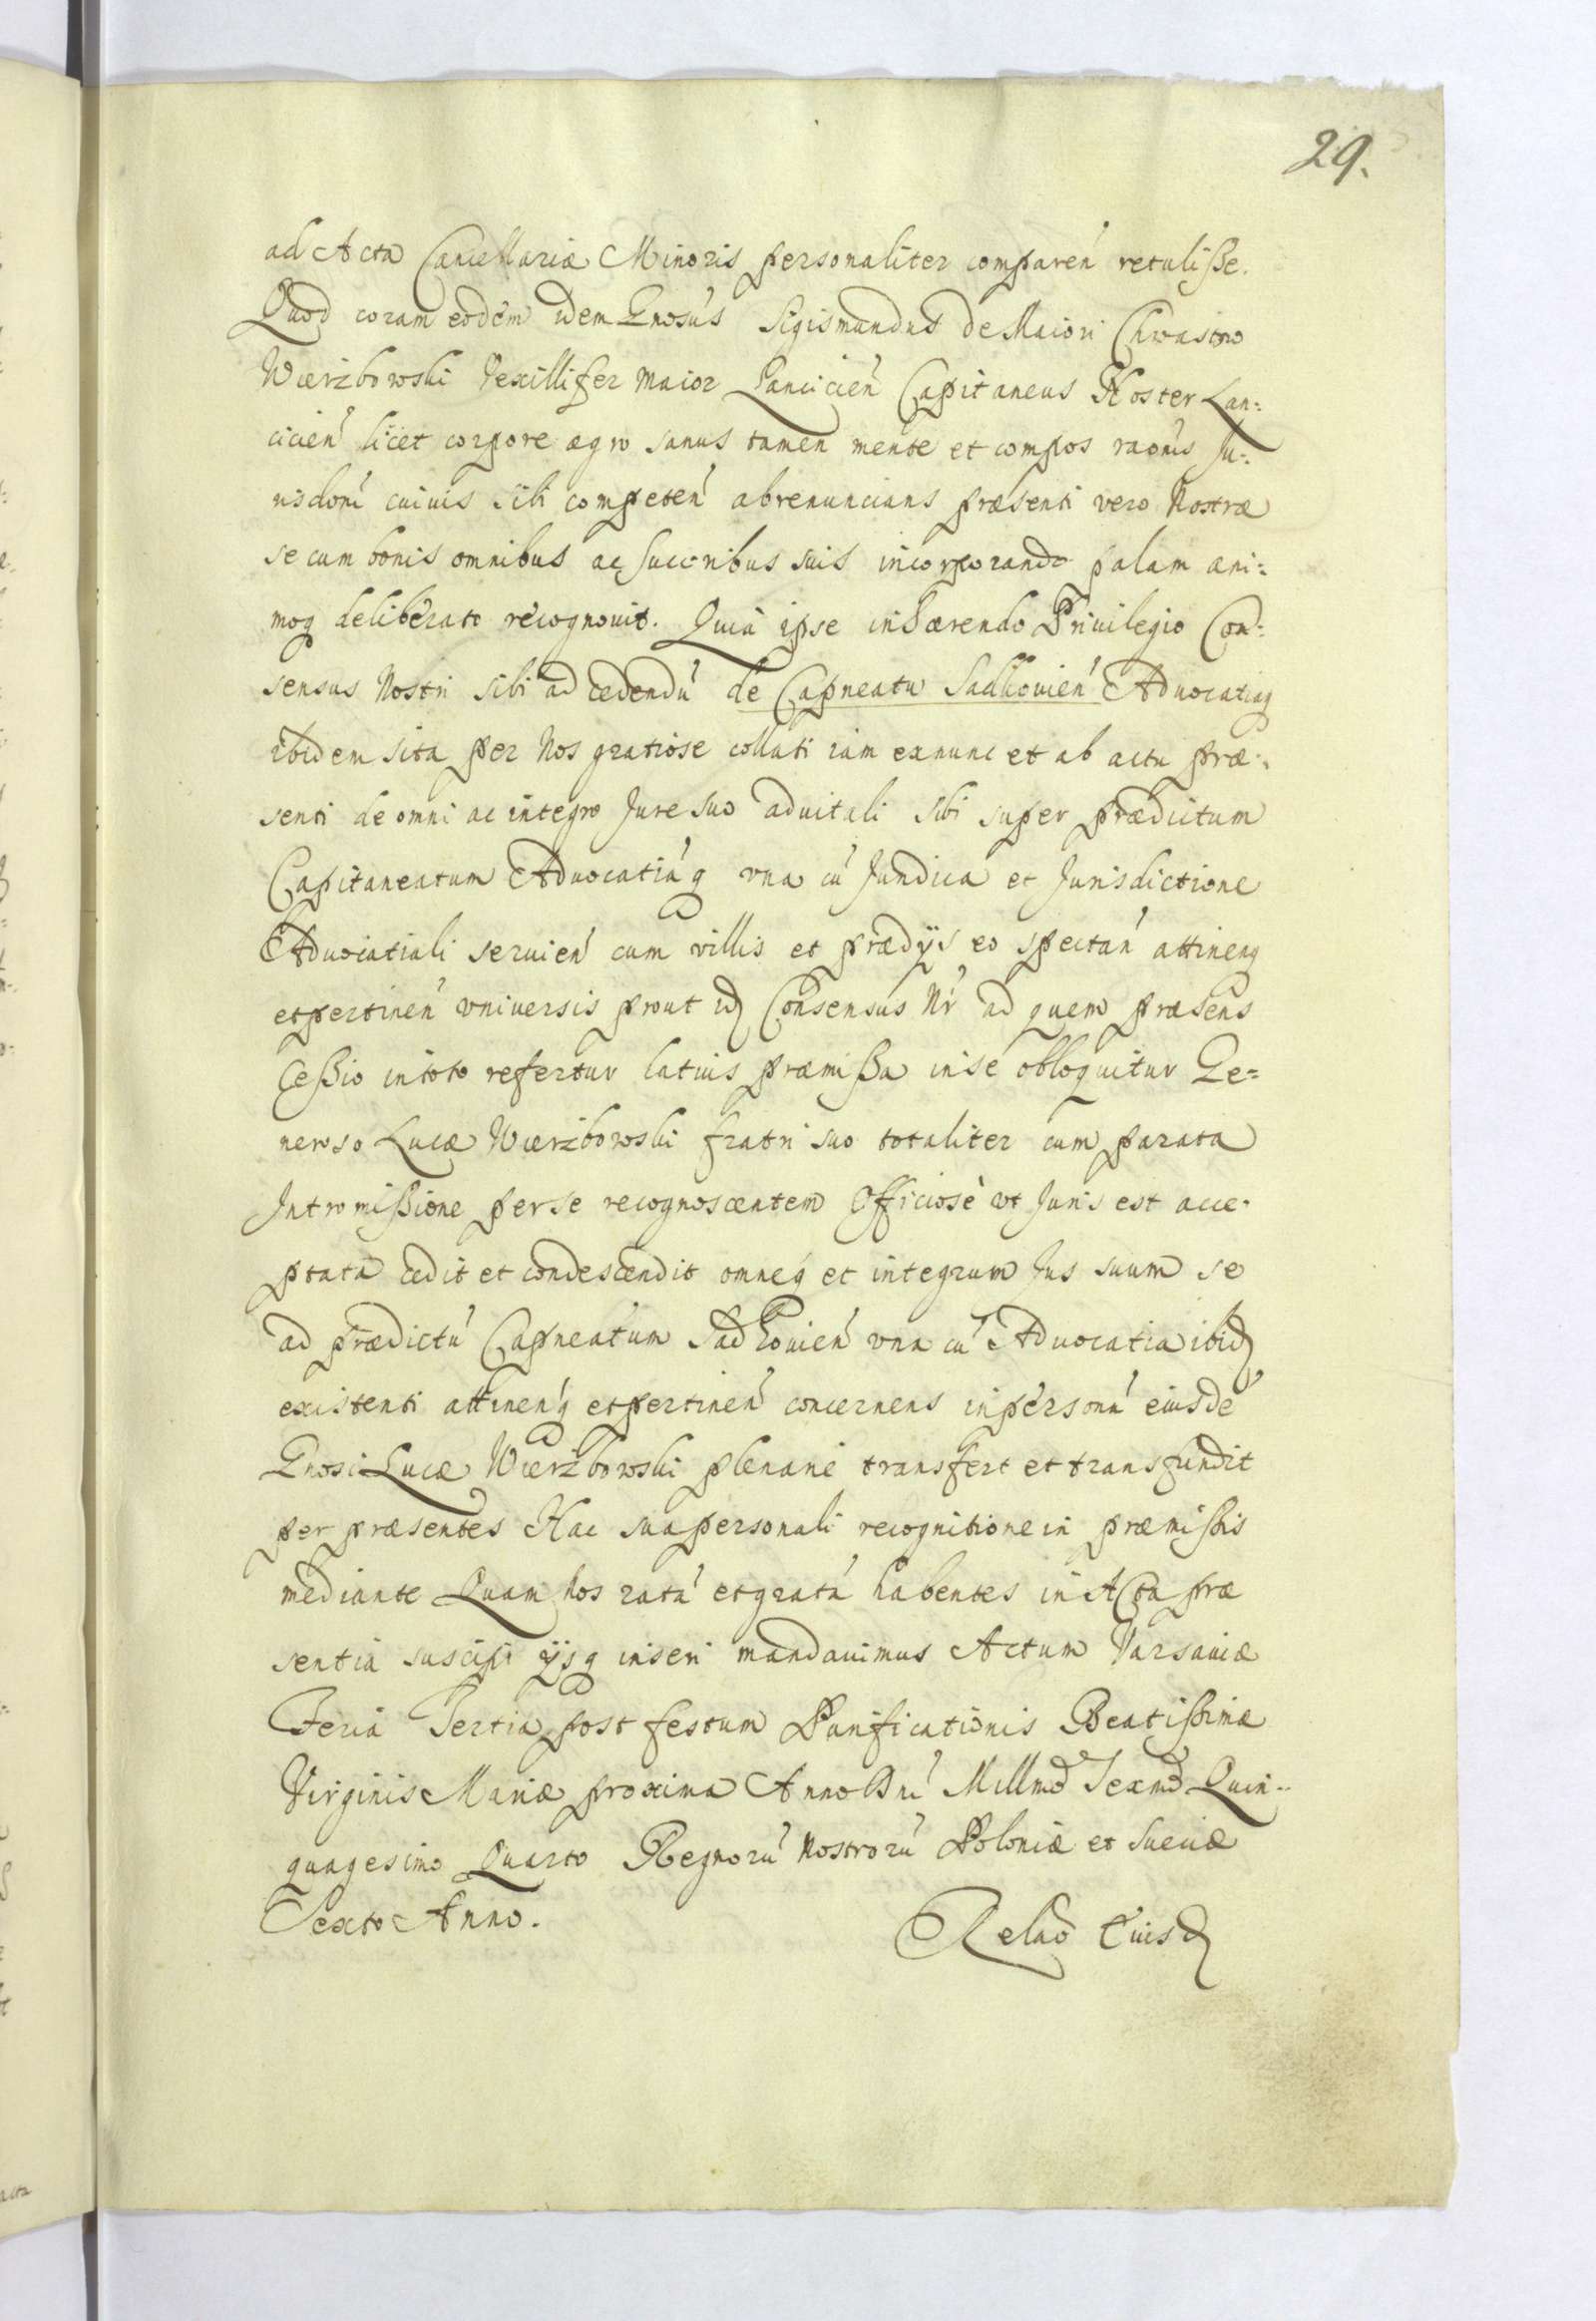 29.
ad Acta Cancellariæ Minoris personaliter comparen̄ retulisse.
Quod coram eodem idem Gnosus Sigismundus de Maiori Chrząstow
Wierzbowski Vexillifer Maior Lancicien̄ Capitaneus Noster Lan:
cicien̄ licet corpore ægro sanus tamen mente et compos raōnis Ju:
risdoni cuiuis sibi competen̄ abrenuncians præsenti vero Nostræ
se cum bonis omnibus ac succribus suis incorporando palam ani:
moq deliberato recognouit. Quia ipse inhærendo Priuilegio Con:
sensus Nostri sibi ad cedendū de Capneatu Sadkouien̄ Aduocatiaq
ibidem sita per Nos gratiose collati iam exnunc et ab actu præ:
senti de omni ac integro Jure suo aduitali sibi super prædictum
Capitaneatum Aduocatiāq vna cū Jurdica et Jurisdictione
Aduocatiali seruien̄ cum villis et prædijs eo spectan̄ attinenq
et pertinen̄ vniuersis prout id Consensus Nr̄ ad quem præsens
Cessio in toto refertur latius præmissa in se obloquitur Ge=
neroso Lucæ Wierzbowski fratri suo totaliter cum parata
Intromissione per se recognoscentem Officiosè vt Juris est acce:
ptata cedit et condescendit omneq et integrum Jus suum se
ad prædictū Capneatum Sadkouien̄ vna cū Aduocatia ibid
existenti attinen̄q et pertinen̄ concernens in personā eiusdē
Gnosi Lucæ Wierzbowski plenarie transfert et transfundit
per præsentes Hac sua personali recognitione in præmissis
mediante Quam Nos ratā et gratā habentes in Acta præ
sentia suscipi ijsq inseri mandauimus Actum Varsauiæ
Feria Tertia post festum Purificationis Beatissimæ
Virginis Mariæ proxima Anno Dni Millmo Sexmo Quin:
quagesimo Quarto Regnorū Nostrorū Poloniæ et Sueciæ
Sexto Anno.
Relaō Eiusd